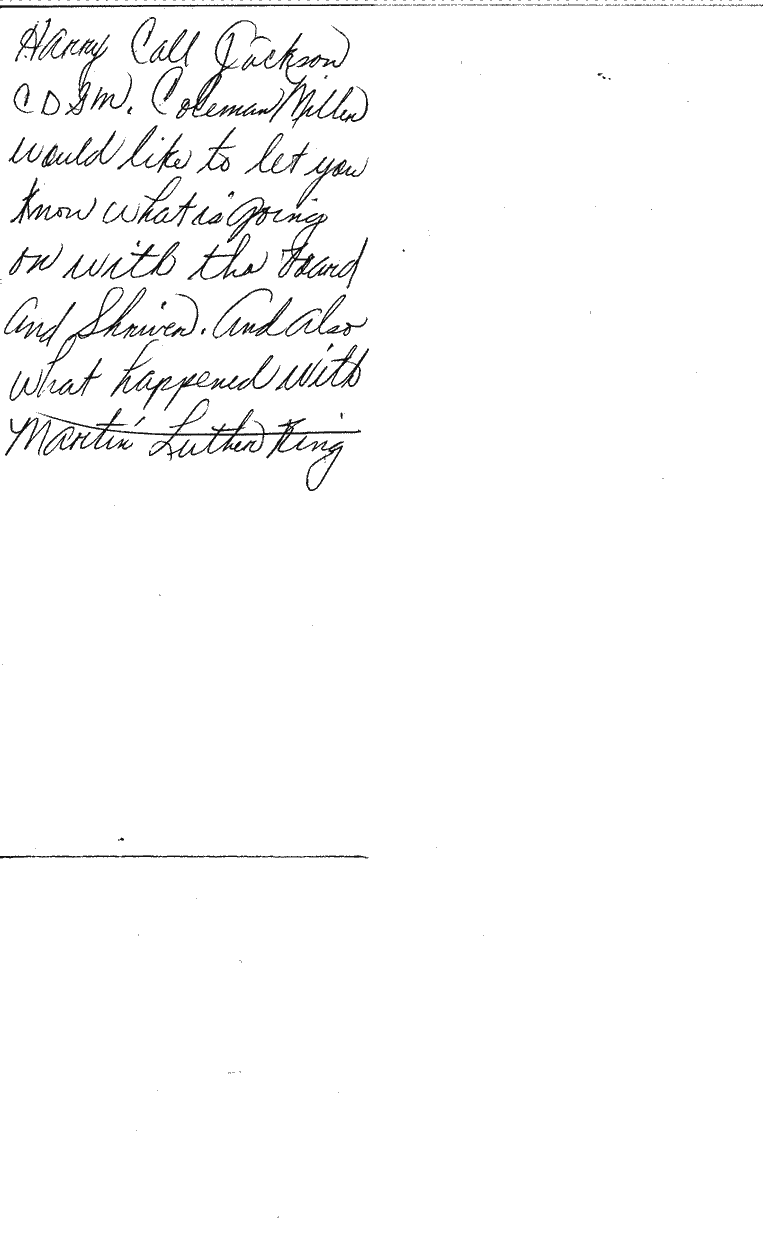 Harry Call Jackson
CDGM. Coleman Miller
would like to let you
know what is going
on with the Board
And Shriver. And also
what happened with
Martin Luther King